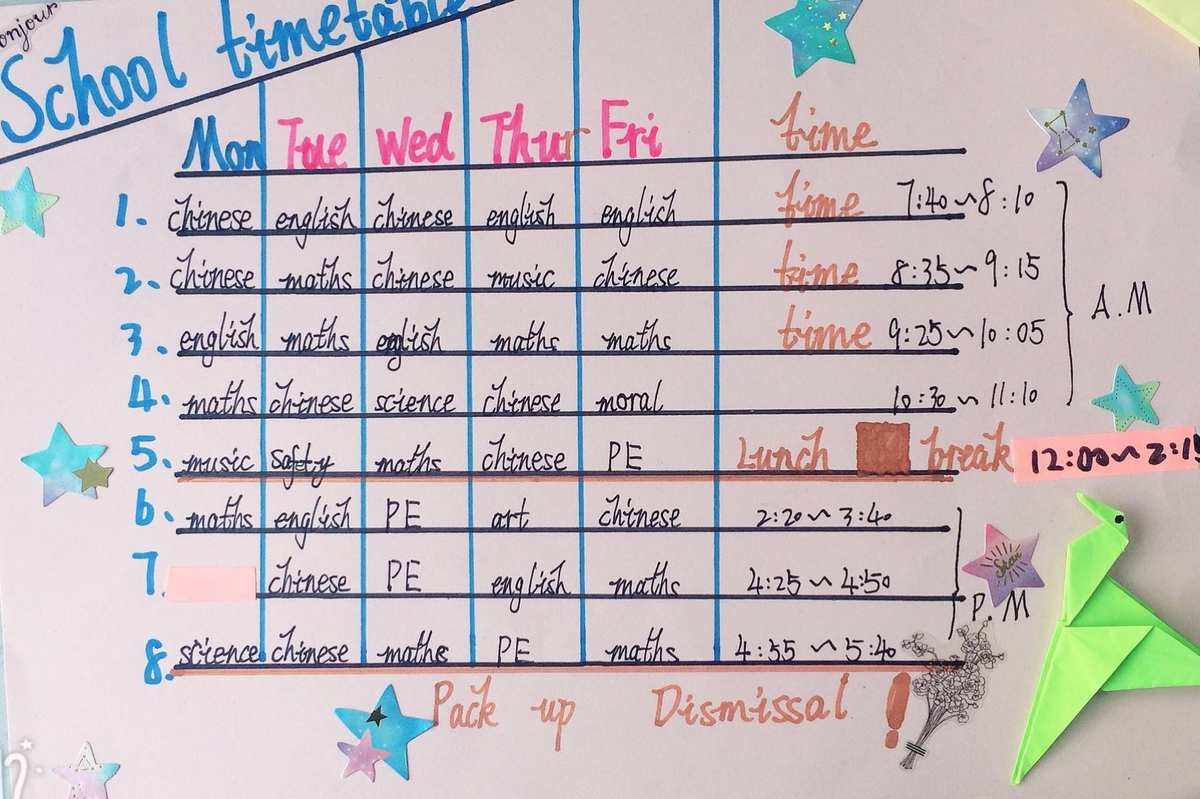 Bonjour
School timetable
Mon Tue Wed Thur Fri time
1. chinese english chinese english english time 7:40~8:10
2. chinese maths chinese music chinese time 8:35~9:15
3. english maths english maths maths time 9:25~10:05
A.M
4. maths chinese science chinese moral 10:30~11:10
5. music safety maths chinese PE Lunch break 12:00~2:15
6. maths english PE art chinese 2:20~3:40
7. chinese PE english maths 4:25~4:50
P.M
8. science chinese maths PE maths 4:55~5:40
Pack up Dismissal !